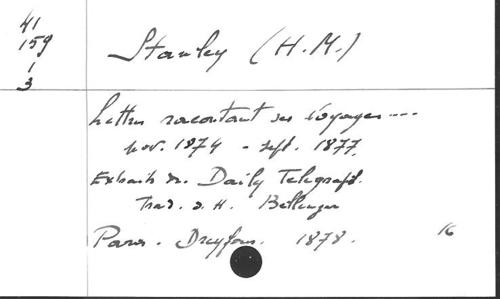 41
159
1
3
Stanley (H.M.)
Lettres racontant ses voyages....
nov. 1874 - sept. 1877.
Extraits du Daily Telegraph.
Trad. d. H. Bellenger
Paris. Dreyfous. 1878. 16